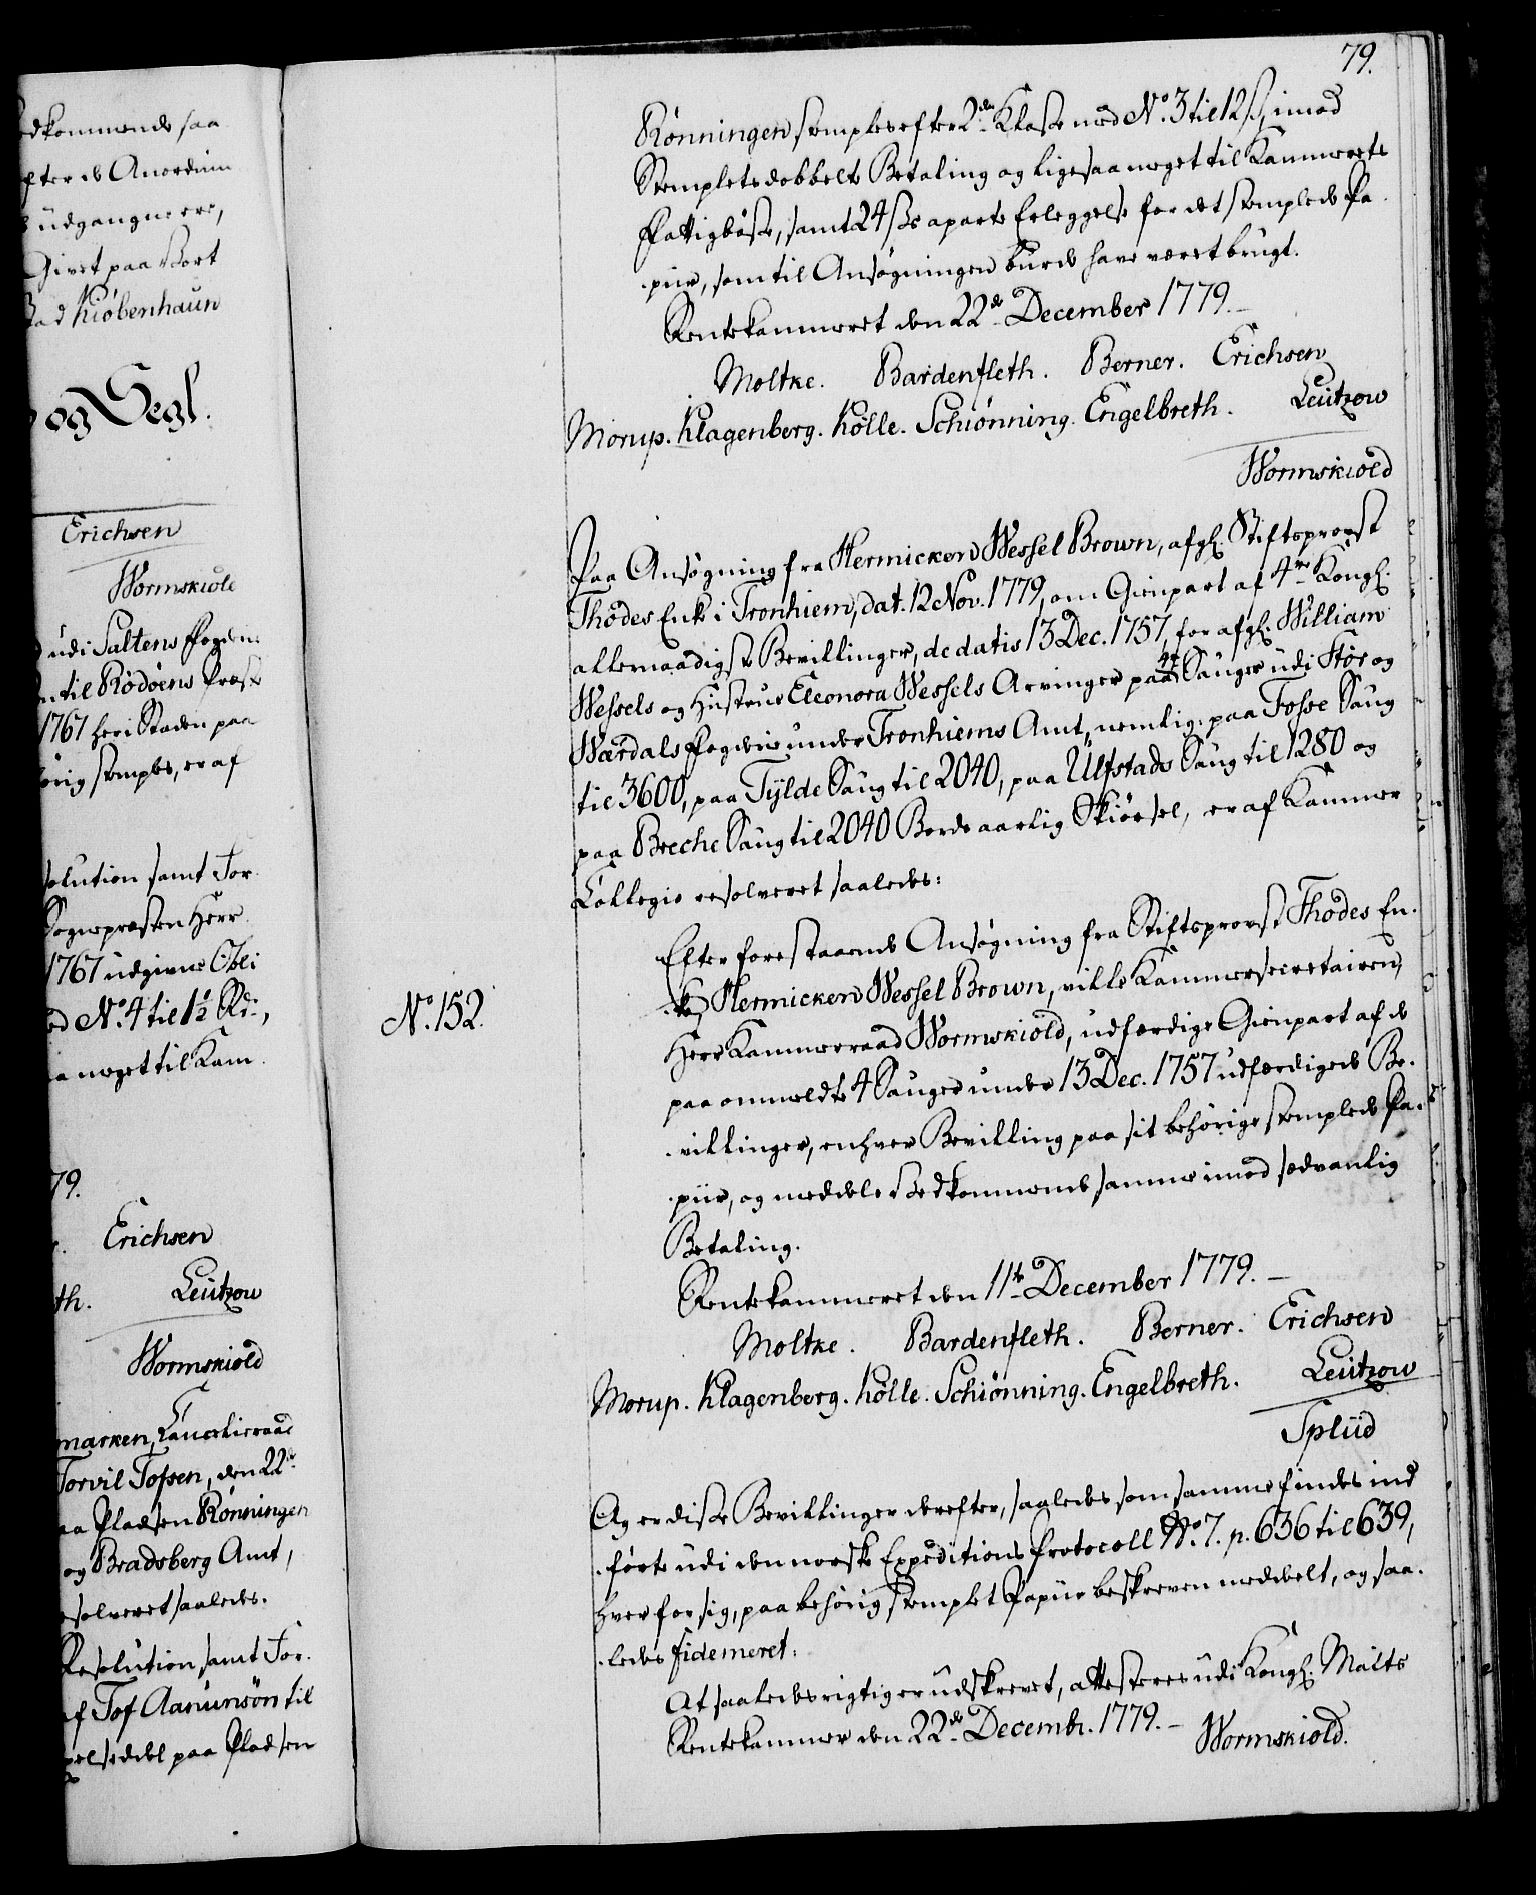 79.
Rönningen stemples efter 2den Klasse med No. 3 til 12 s, imod
Stemplets dobbelte Betaling og ligesaa meget til Kammerets
Fattigbösse, samt 24 s aparte Erleggelse for det stemplede Pa-
piir, som til Ansøgningen burde have været brugt.
Rentekammeret den 22de December 1779.
Moltke. Bardenfleth. Berner. Erichsen
Morup. Klagenberg. Kölle. Schiönning. Engelbreth. Leützow
Wormskiold
Paa Ansøgning fra Hermicken Wessel Brown, afgl. Stiftsprovst
Thodes Enke i Tronhiem, dat. 12 Nov. 1779, om Gienpart af 4re Kongl.
allernaadigste Bevillinger, de datis 13 Dec. 1757, for afgl. William
Wessels og Hustrue Eleonora Wessels Arvinger paa 4re Sauger udi Stör og
Wærdals Fogderie under Tronhiems Amt, nemlig: paa Fosse Saug
til 3600, paa Tylde Saug til 2040, paa Ulfstads Saug til 1280 og
paa Breche Saug til 2040 Bords aarlig Skiörsel, er af Kammer
Collegio resolveret saaledes:
No. 152.
Efter forestaaende Ansøgning fra Stiftsprovst Thodes En-
ke, Hermicken Wessel Brown, ville Kammersecretairen,
Herr Kammerraad Wormskiold, udfærdige Gienpart af de
paa ommeldte 4 Sauger under 13 Dec. 1757 udfærdigede Be-
villinger, enhver Bevilling paa sit behörige stemplede Pa-
piir, og meddele Vedkommende samme imod sædvanlig
Betaling.
Rentekammeret den 11te December 1779.
Moltke. Bardenfleth. Berner. Erichsen
Morup. Klagenberg. Kölle. Schiönning. Engelbreth. Leützow
Spliid
Og er disse Bevillinger derefter, saaledes som samme findes ind
förte udi den norske Expeditions Protocoll No. 7. p. 636 til 639,
hver for sig, paa behörig stemplet Papiir beskreven meddelt, og saa-
ledes fidemeret:
At saaledes rigtig er udskrevet, attesteres udi Kongl. Maits
Rentekammer den 22de Decembr. 1779.
Wormskiold.
dkommende saa
fter de Anordnin
udgangne ere,
Givet paa Vort
tad Kiöbenhaun
og Segl.
Erichsen
Wormskiold
udi Saltens Fogderie
til Rödöens Præste
1767 her i Staden paa
örig stemplet, er af
solution samt For-
Sognepræsten Herr
1767 udgivne Obli
ed No. 4 til 1½ Rd.,
a meget til Kam
79.
Erichsen
th. Leützow
Wormskiold
marken, Cancelieraad
Torvil Tofsen, den 22de
aa Pladsen Rönningen
og Bradsberg Amt,
esolveret saaledes.
Resolution samt For-
af Tof Aanunsön til
elseddel paa Pladsen